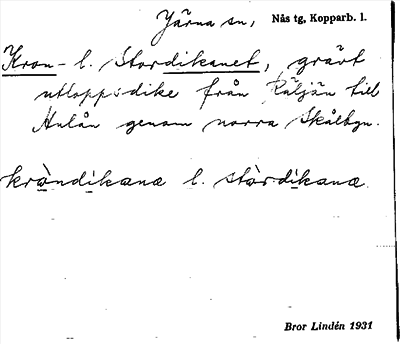 Järna sn, Nås tg, Kopparb. l.
Kron- l. Stordikanet, grävt
utloppsdike från Räljän till
Hulån genom norra Skålbyn.
kròndikanæ l. stòrdikanæ.
Bror Lindén 1931